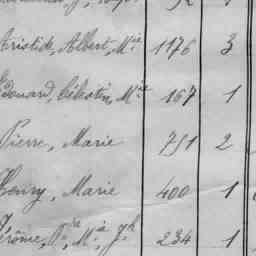 Aristide, Albert, Mie 1176 3
Edouard, Célestin, Mie 167 1
Pierre, Marie 751 2
Henry, Marie 400 1
Jérôme, Pre, Ma, Jh 234 1